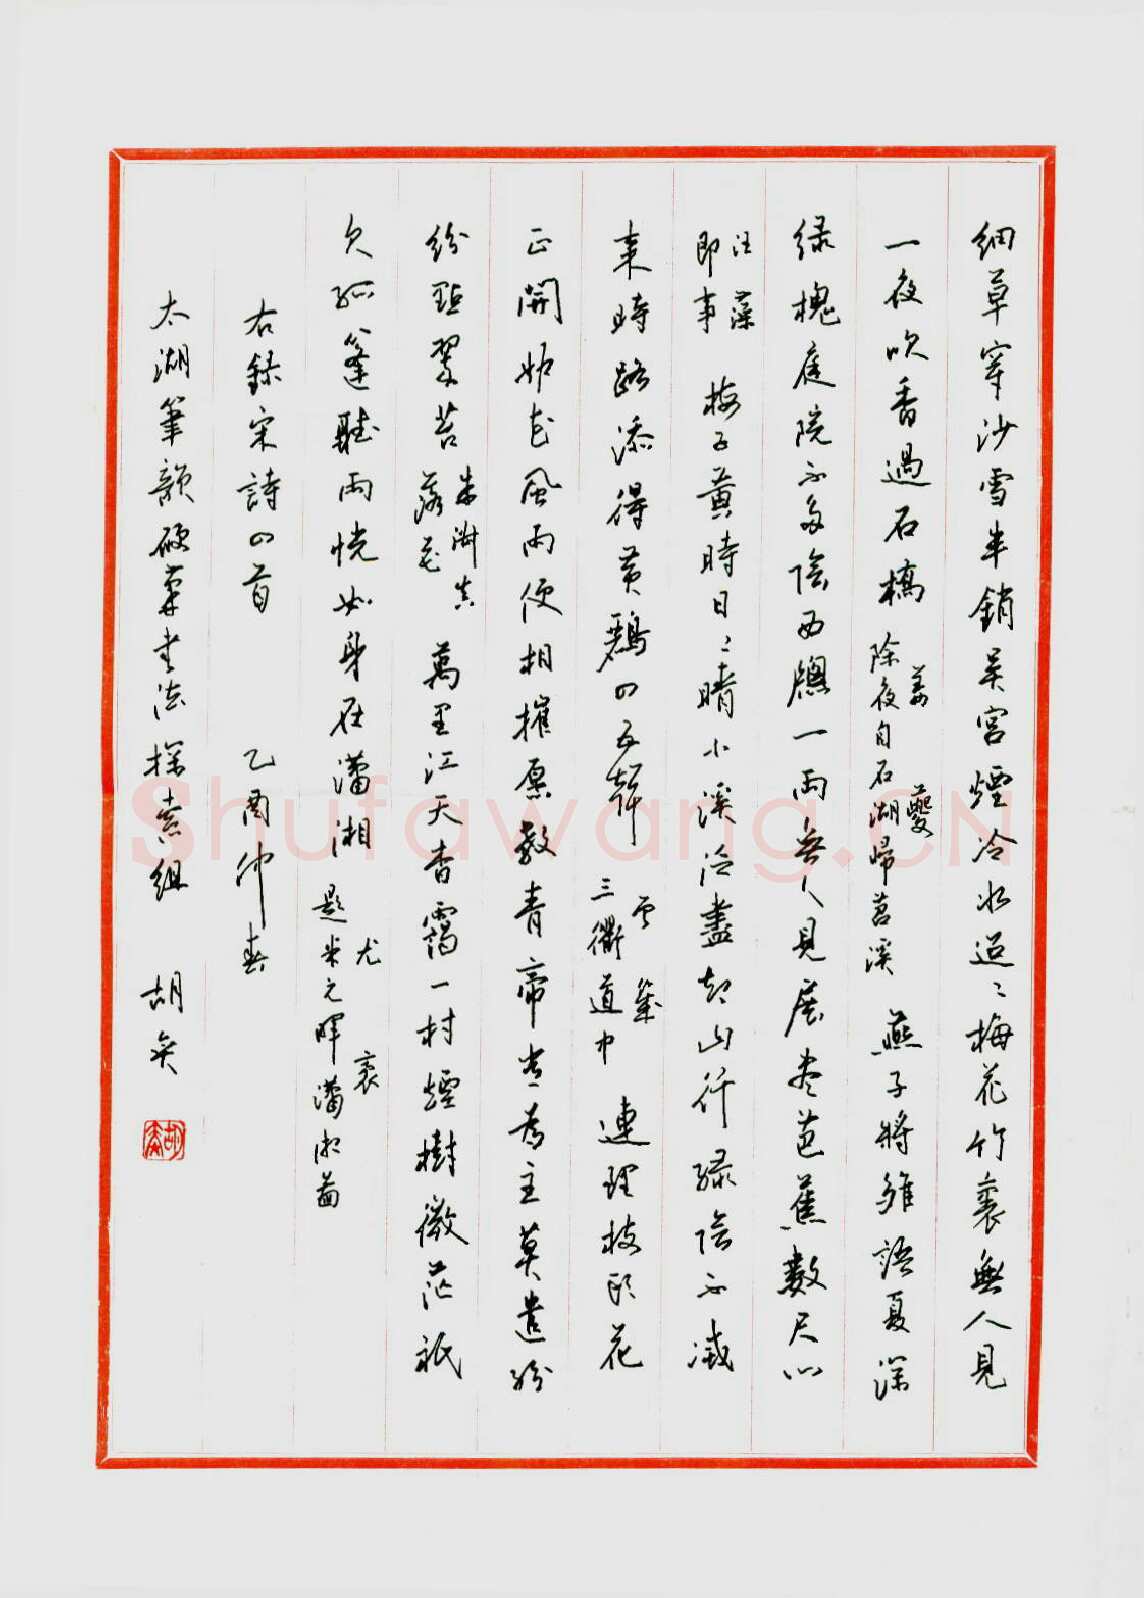 細草穿沙雪半銷吳宮煙冷水迢〻梅花竹裏無人見
一夜吹香過石橋 姜夔 除夜自石湖歸苕溪 燕子將雛語夏深
綠槐庭院不多陰西牕一雨無人見展盡芭蕉數尺心
汪藻 即事 梅子黃時日〻晴小溪泛盡卻山行綠陰不減
來時路添得黃鸝四五聲 曾幾 三衢道中 連理枝頭花
正開妒花風雨便相摧願教青帝常為主莫遣紛
紛點翠苔 朱淑真 落花 萬里江天杳靄一村煙樹微茫祇
欠孤篷聽雨恍如身在瀟湘 尤袤 題米元暉瀟湘圖
右錄宋詩四首 乙酉仲春
太湖筆韻硬筆書法探索組 胡奕
胡奕
Shufawang.CN